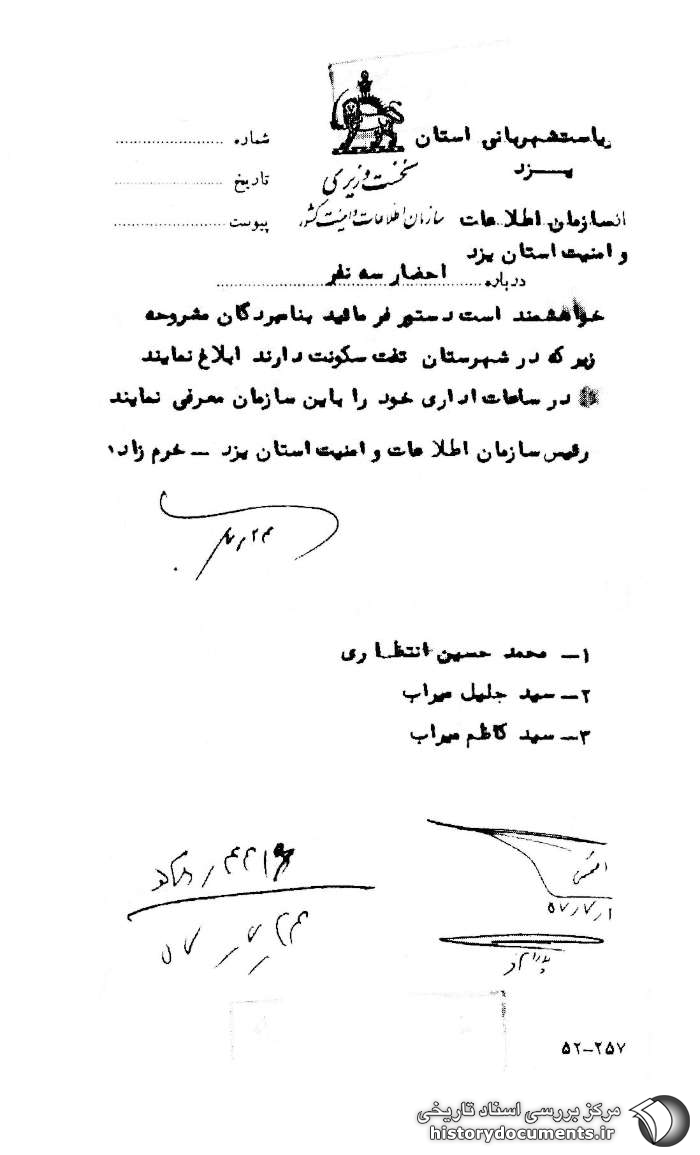 ریاست شهربانی استان
یزد
نخست وزیری
شماره
تاریخ
پیوست
از سازمان اطلاعات
سازمان اطلاعات و امنیت کشور
و امنیت استان یزد
درباره احضار سه نفر
خواهشمند است دستور فرمائید بنامبردگان مشروحه
زیر که در شهرستان تفت سکونت دارند ابلاغ نمایند
در ساعات اداری خود را باین سازمان معرفی نمایند
رئیس سازمان اطلاعات و امنیت استان یزد – خرم زاده
۱– محمد حسین انتظاری
۲– سید جلیل میراب
۳– سید کاظم میراب
۵۷/۷/۱
۵۷-۷-۲۴
۵۲-۲۵۷
مرکز بررسی اسناد تاریخی
historydocuments.ir